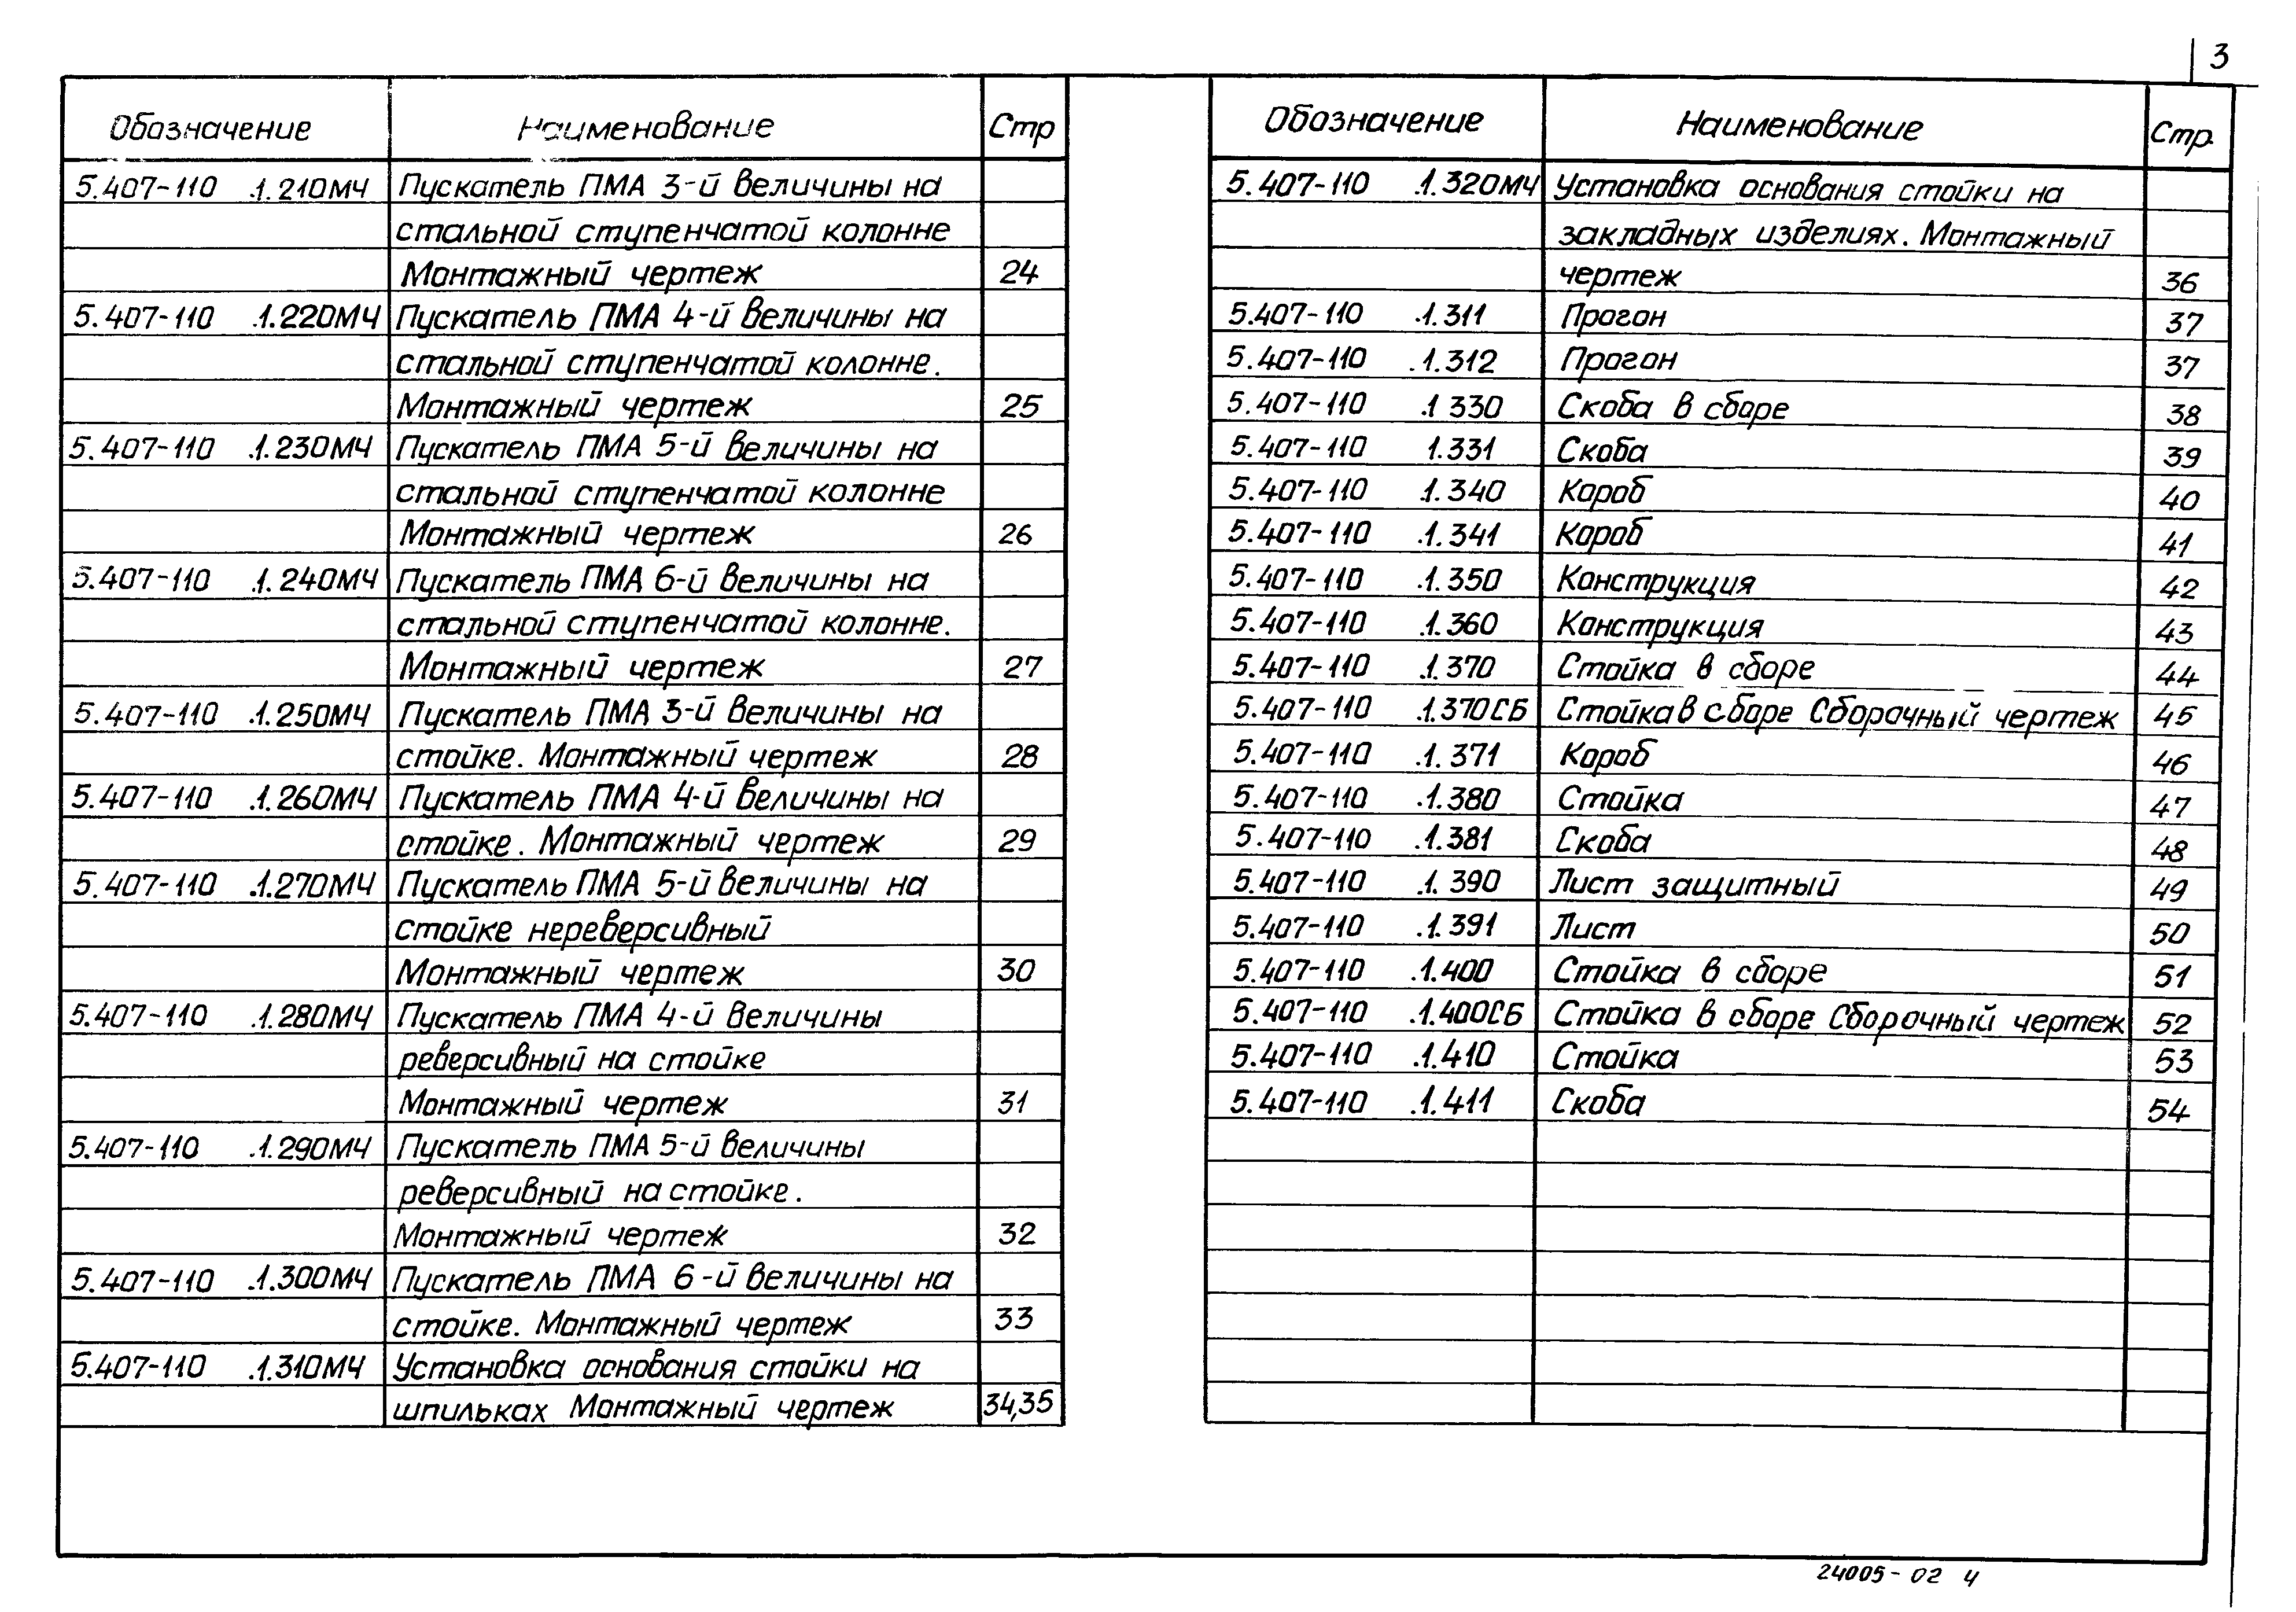 3
Обозначение Наименование Стр
5.407-110 .1.210МЧ Пускатель ПМА 3-й величины на
стальной ступенчатой колонне
Монтажный чертеж 24
5.407-110 .1.220МЧ Пускатель ПМА 4-й величины на
стальной ступенчатой колонне.
Монтажный чертеж 25
5.407-110 .1.230МЧ Пускатель ПМА 5-й величины на
стальной ступенчатой колонне
Монтажный чертеж 26
5.407-110 .1.240МЧ Пускатель ПМА 6-й величины на
стальной ступенчатой колонне.
Монтажный чертеж 27
5.407-110 .1.250МЧ Пускатель ПМА 3-й величины на
стойке. Монтажный чертеж 28
5.407-110 .1.260МЧ Пускатель ПМА 4-й величины на
стойке. Монтажный чертеж 29
5.407-110 .1.270МЧ Пускатель ПМА 5-й величины на
стойке нереверсивный
Монтажный чертеж 30
5.407-110 .1.280МЧ Пускатель ПМА 4-й величины
реверсивный на стойке
Монтажный чертеж 31
5.407-110 .1.290МЧ Пускатель ПМА 5-й величины
реверсивный на стойке.
Монтажный чертеж 32
5.407-110 .1.300МЧ Пускатель ПМА 6-й величины на
стойке. Монтажный чертеж 33
5.407-110 .1.310МЧ Установка основания стойки на
шпильках Монтажный чертеж 34,35
Обозначение Наименование Стр.
5.407-110 .1.320МЧ Установка основания стойки на
закладных изделиях. Монтажный
чертеж 36
5.407-110 .1.311 Прогон 37
5.407-110 .1.312 Прогон 37
5.407-110 .1 330 Скоба в сборе 38
5.407-110 1.331 Скоба 39
5.407-110 .1.340 Короб 40
5.407-110 .1.341 Короб 41
5.407-110 .1.350 Конструкция 42
5.407-110 .1.360 Конструкция 43
5.407-110 .1.370 Стойка в сборе 44
5.407-110 .1.370СБ Стойка в сборе Сборочный чертеж 45
5.407-110 .1.371 Короб 46
5.407-110 .1.380 Стойка 47
5.407-110 .1.381 Скоба 48
5.407-110 .1.390 Лист защитный 49
5.407-110 .1.391 Лист 50
5.407-110 .1.400 Стойка в сборе 51
5.407-110 .1.400СБ Стойка в сборе Сборочный чертеж 52
5.407-110 .1.410 Стойка 53
5.407-110 .1.411 Скоба 54
24005-02 4